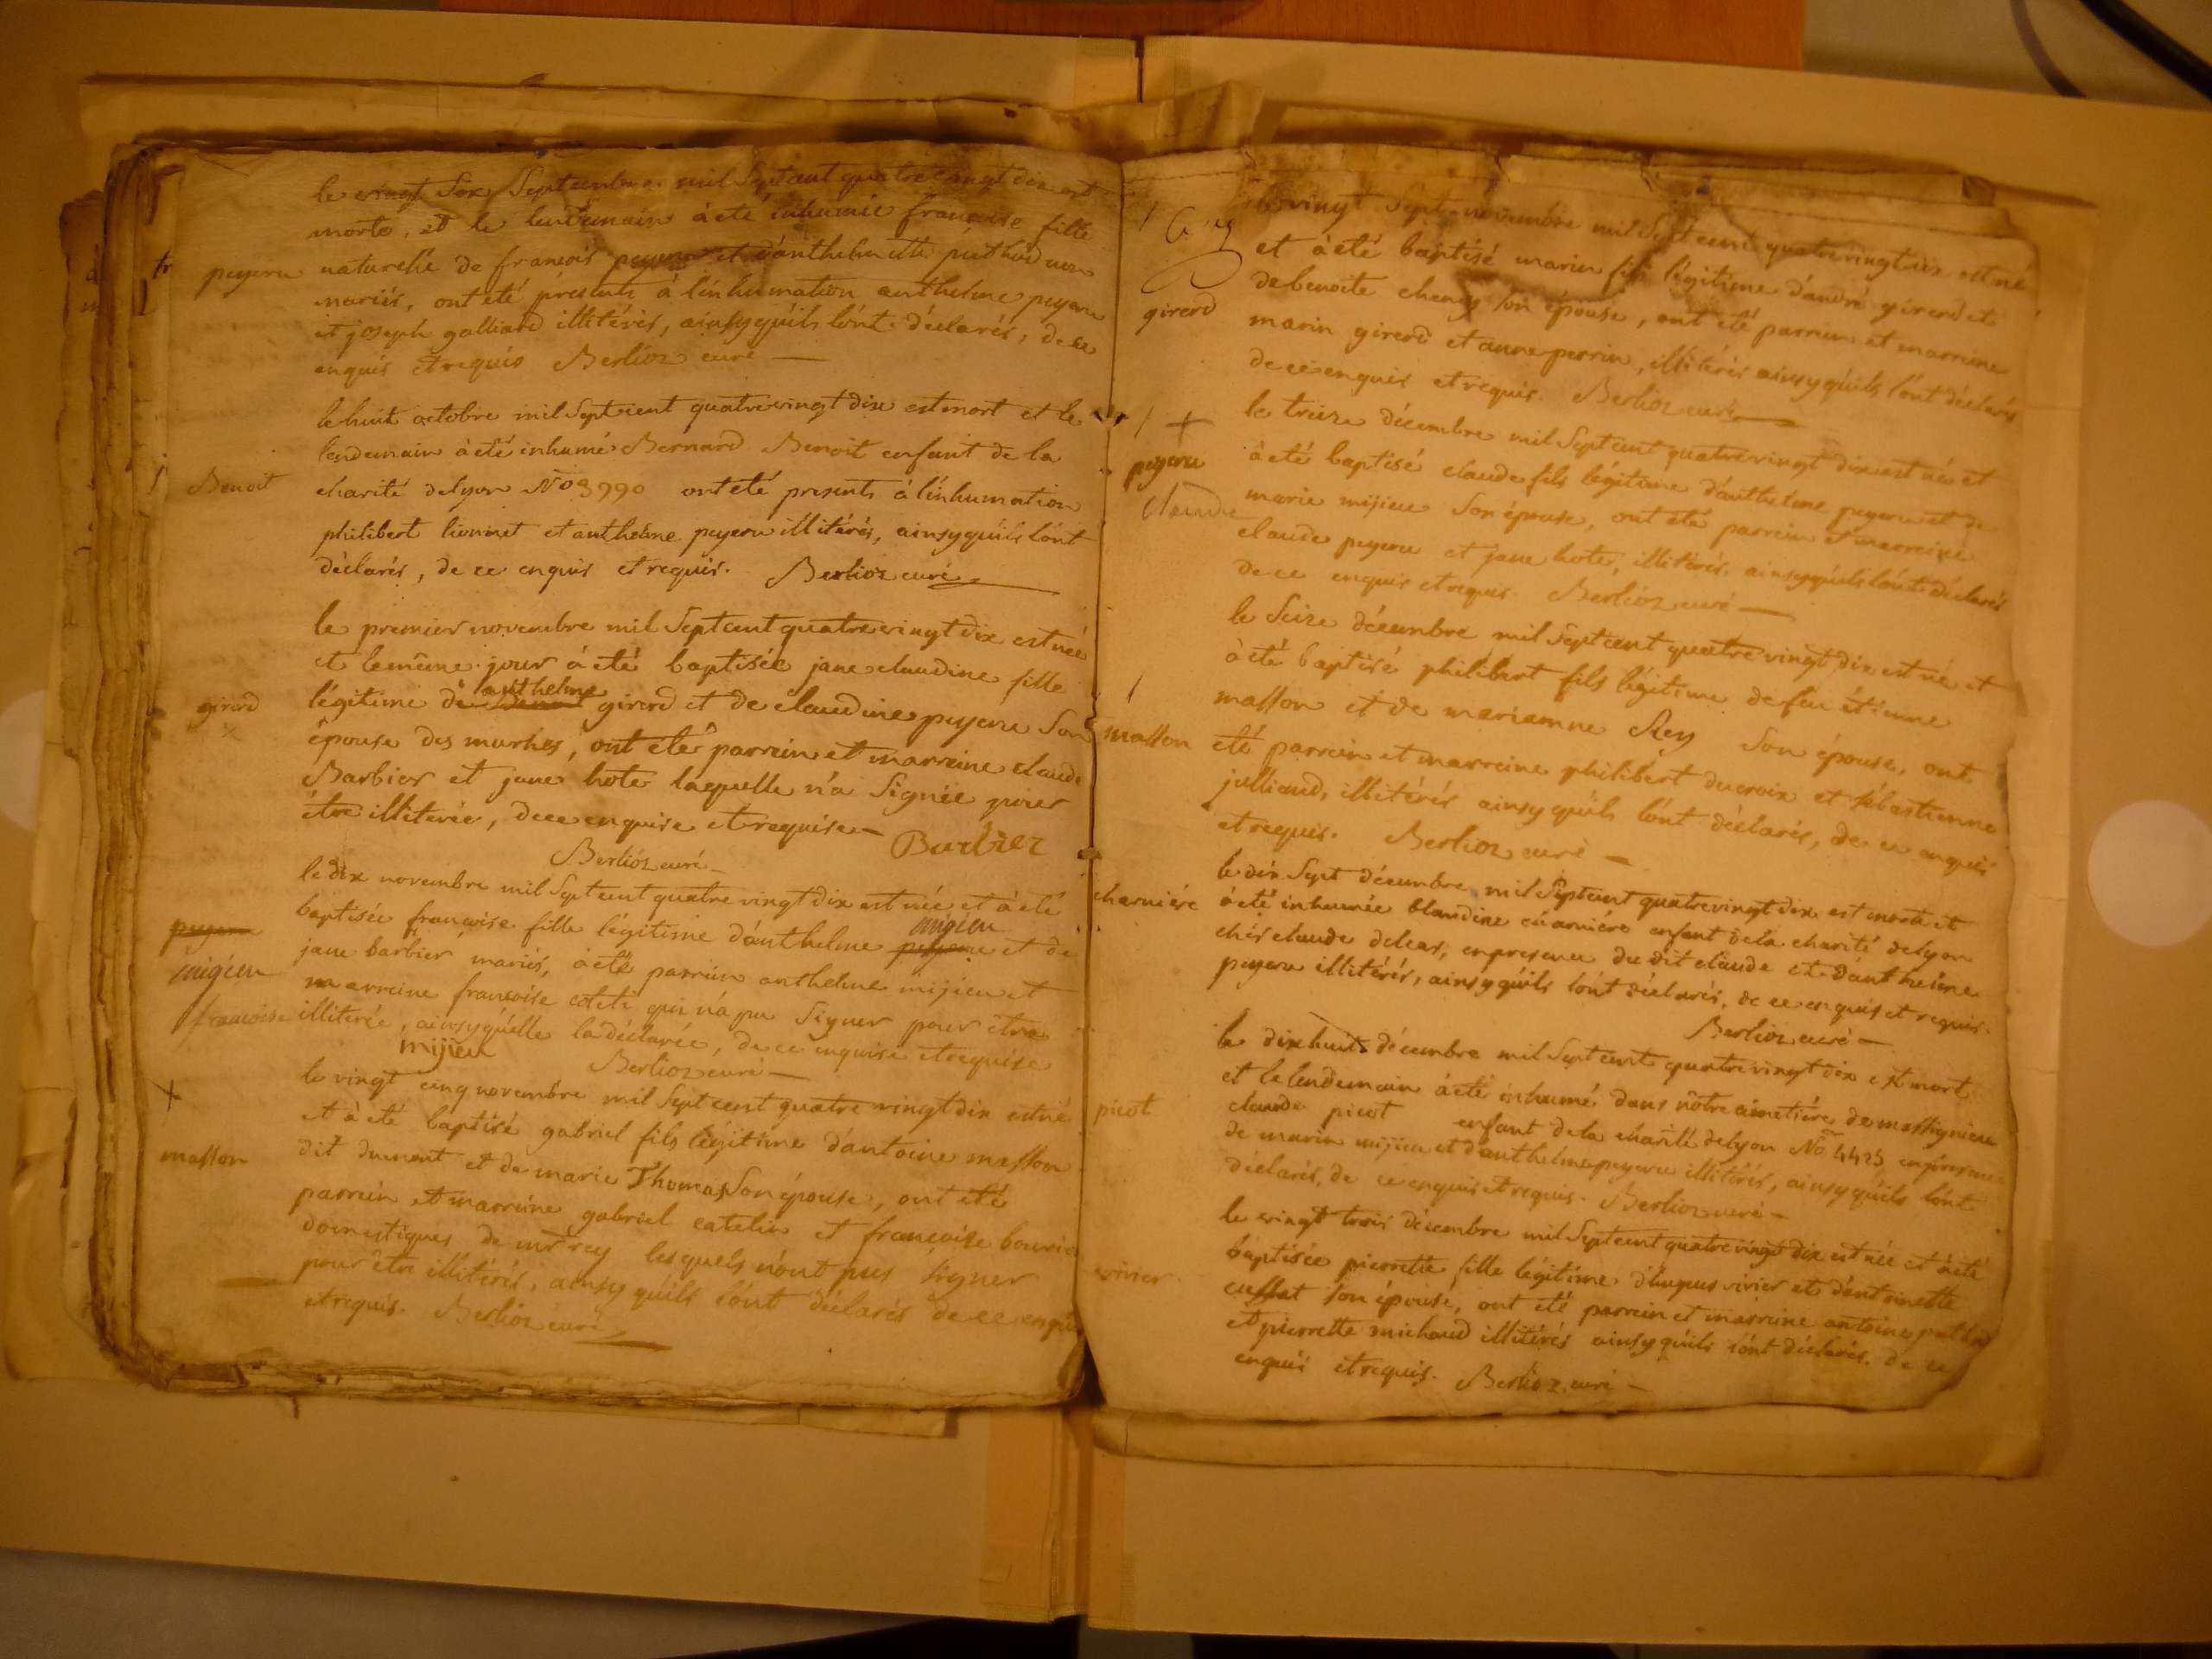 le vingt Six Septembre mil Septcent quatre vingt dix est
morte, et le lendemain à eté inhumée francoise fille
peyeru naturelle de francois peyeru et d'anthelmette puthod
mariés, ont eté présents à l'inhumation anthelme peyeru
et joseph galliard illitérés, ainsy qu'ils l'ont déclarés, de ce
enquis et requis Berlioz curé
le huit octobre mil Septcent quatrevingt dix est mort et le
lendemain à eté inhumé Bernard Benoit enfant de la
Benoit charité de lyon No 3990 ont eté presents à l'inhumation
philibert lionnet et anthelme peyeru illitérés, ainsy qu'ils l'ont
déclarés, de ce enquis et requis. Berlioz curé
le premier novembre mil Septcent quatre vingt dix est née
et le même jour à eté baptisée jane claudine fille
girerd légitime de anthelme girerd et de claudine peyeru Son
épouse des marches, ont eté parrein et marreine claude
Barbier et jane hote laquelle n'a Signée pour
être illiterée, de ce enquise et requise Barbier
Berlioz curé
le dix novembre mil Septcent quatre vingt dix est née et à eté
peyeru baptisée francoise fille légitime d'anthelme peyeru migieu et de
migieu jane barbier mariés, à eté parrein anthelme mijieu et
marreine francoise coleti qui n'a pu Signer pour être
francoise illiterée, ainsy qu'elle la déclarée, de ce enquise et requise
mijieu Berlioz curé
le vingt cinq novembre mil Septcent quatre vingt dix est né
et à eté baptisé gabriel fils légitime d'antoine masson
masson dit dument et de marie Thomas Son épouse, ont eté
parrein et marreine gabriel catelin et francoise
domestiques de mr rey lesquels n'ont pus signer
pour être illitérés, ainsy qu'ils l'ont déclarés de ce enquis
et requis. Berlioz curé
le vingt Sept novembre mil Septcent quatrevingt dix est né
et à eté baptisé marin fils légitime d'andré girerd et
de benoite cheney son épouse, ont eté parrein et marreine
girerd marin girerd et anne perrin, illitérés ainsy qu'ils l'ont déclarés
de ce enquis et requis. Berlioz curé
le treize décembre mil Septcent quatrevingt dix est né et
peyeru à eté baptisé claude fils légitime d'anthelme peyeru et de
claude marie mijieu Son épouse, ont eté parrein et marreine
claude peyeru et jane hote, illitérés, ainsy qu'ils l'ont déclarés
de ce enquis et requis. Berlioz curé
le Seize décembre mil Septcent quatre vingt dix est né et
à eté baptisé philibert fils légitime de feu étienne
masson masson et de marianne Rey Son épouse, ont
eté parrein et marreine philibert ducroix et sébastienne
julliand, illitérés ainsy qu'ils l'ont déclarés, de ce enquis
et requis. Berlioz curé
le dix Sept décembre mil Septcent quatrevingt dix est morte et
charniére à eté inhumée blandine charniére enfant de la charité de lyon
chés claude delear, en presence du dit claude et d'anthelme
peyeru illitérés, ainsy qu'ils l'ont déclarés, de ce enquis et requis.
Berlioz curé
le dixhuit décembre mil Septcent quatrevingt dix est mort
et le lendemain à eté inhumé dans nôtre cimetière de massignieu
picot claude picot enfant de la charité de lyon No 4425 en presence
de marin mijieu et d'anthelme peyeru illitérés, ainsy qu'ils l'ont
déclarés, de ce enquis et requis. Berlioz curé
le vingt trois décembre mil Septcent quatrevingt dix est née et à eté
vivier baptisée pierrette fille légitime d'hugues vivier et d'antoinette
cussat son épouse, ont eté parrein et marreine antoine
et pierrette michaud illitérés ainsy qu'ils l'ont déclarés. de ce
enquis et requis. Berlioz curé